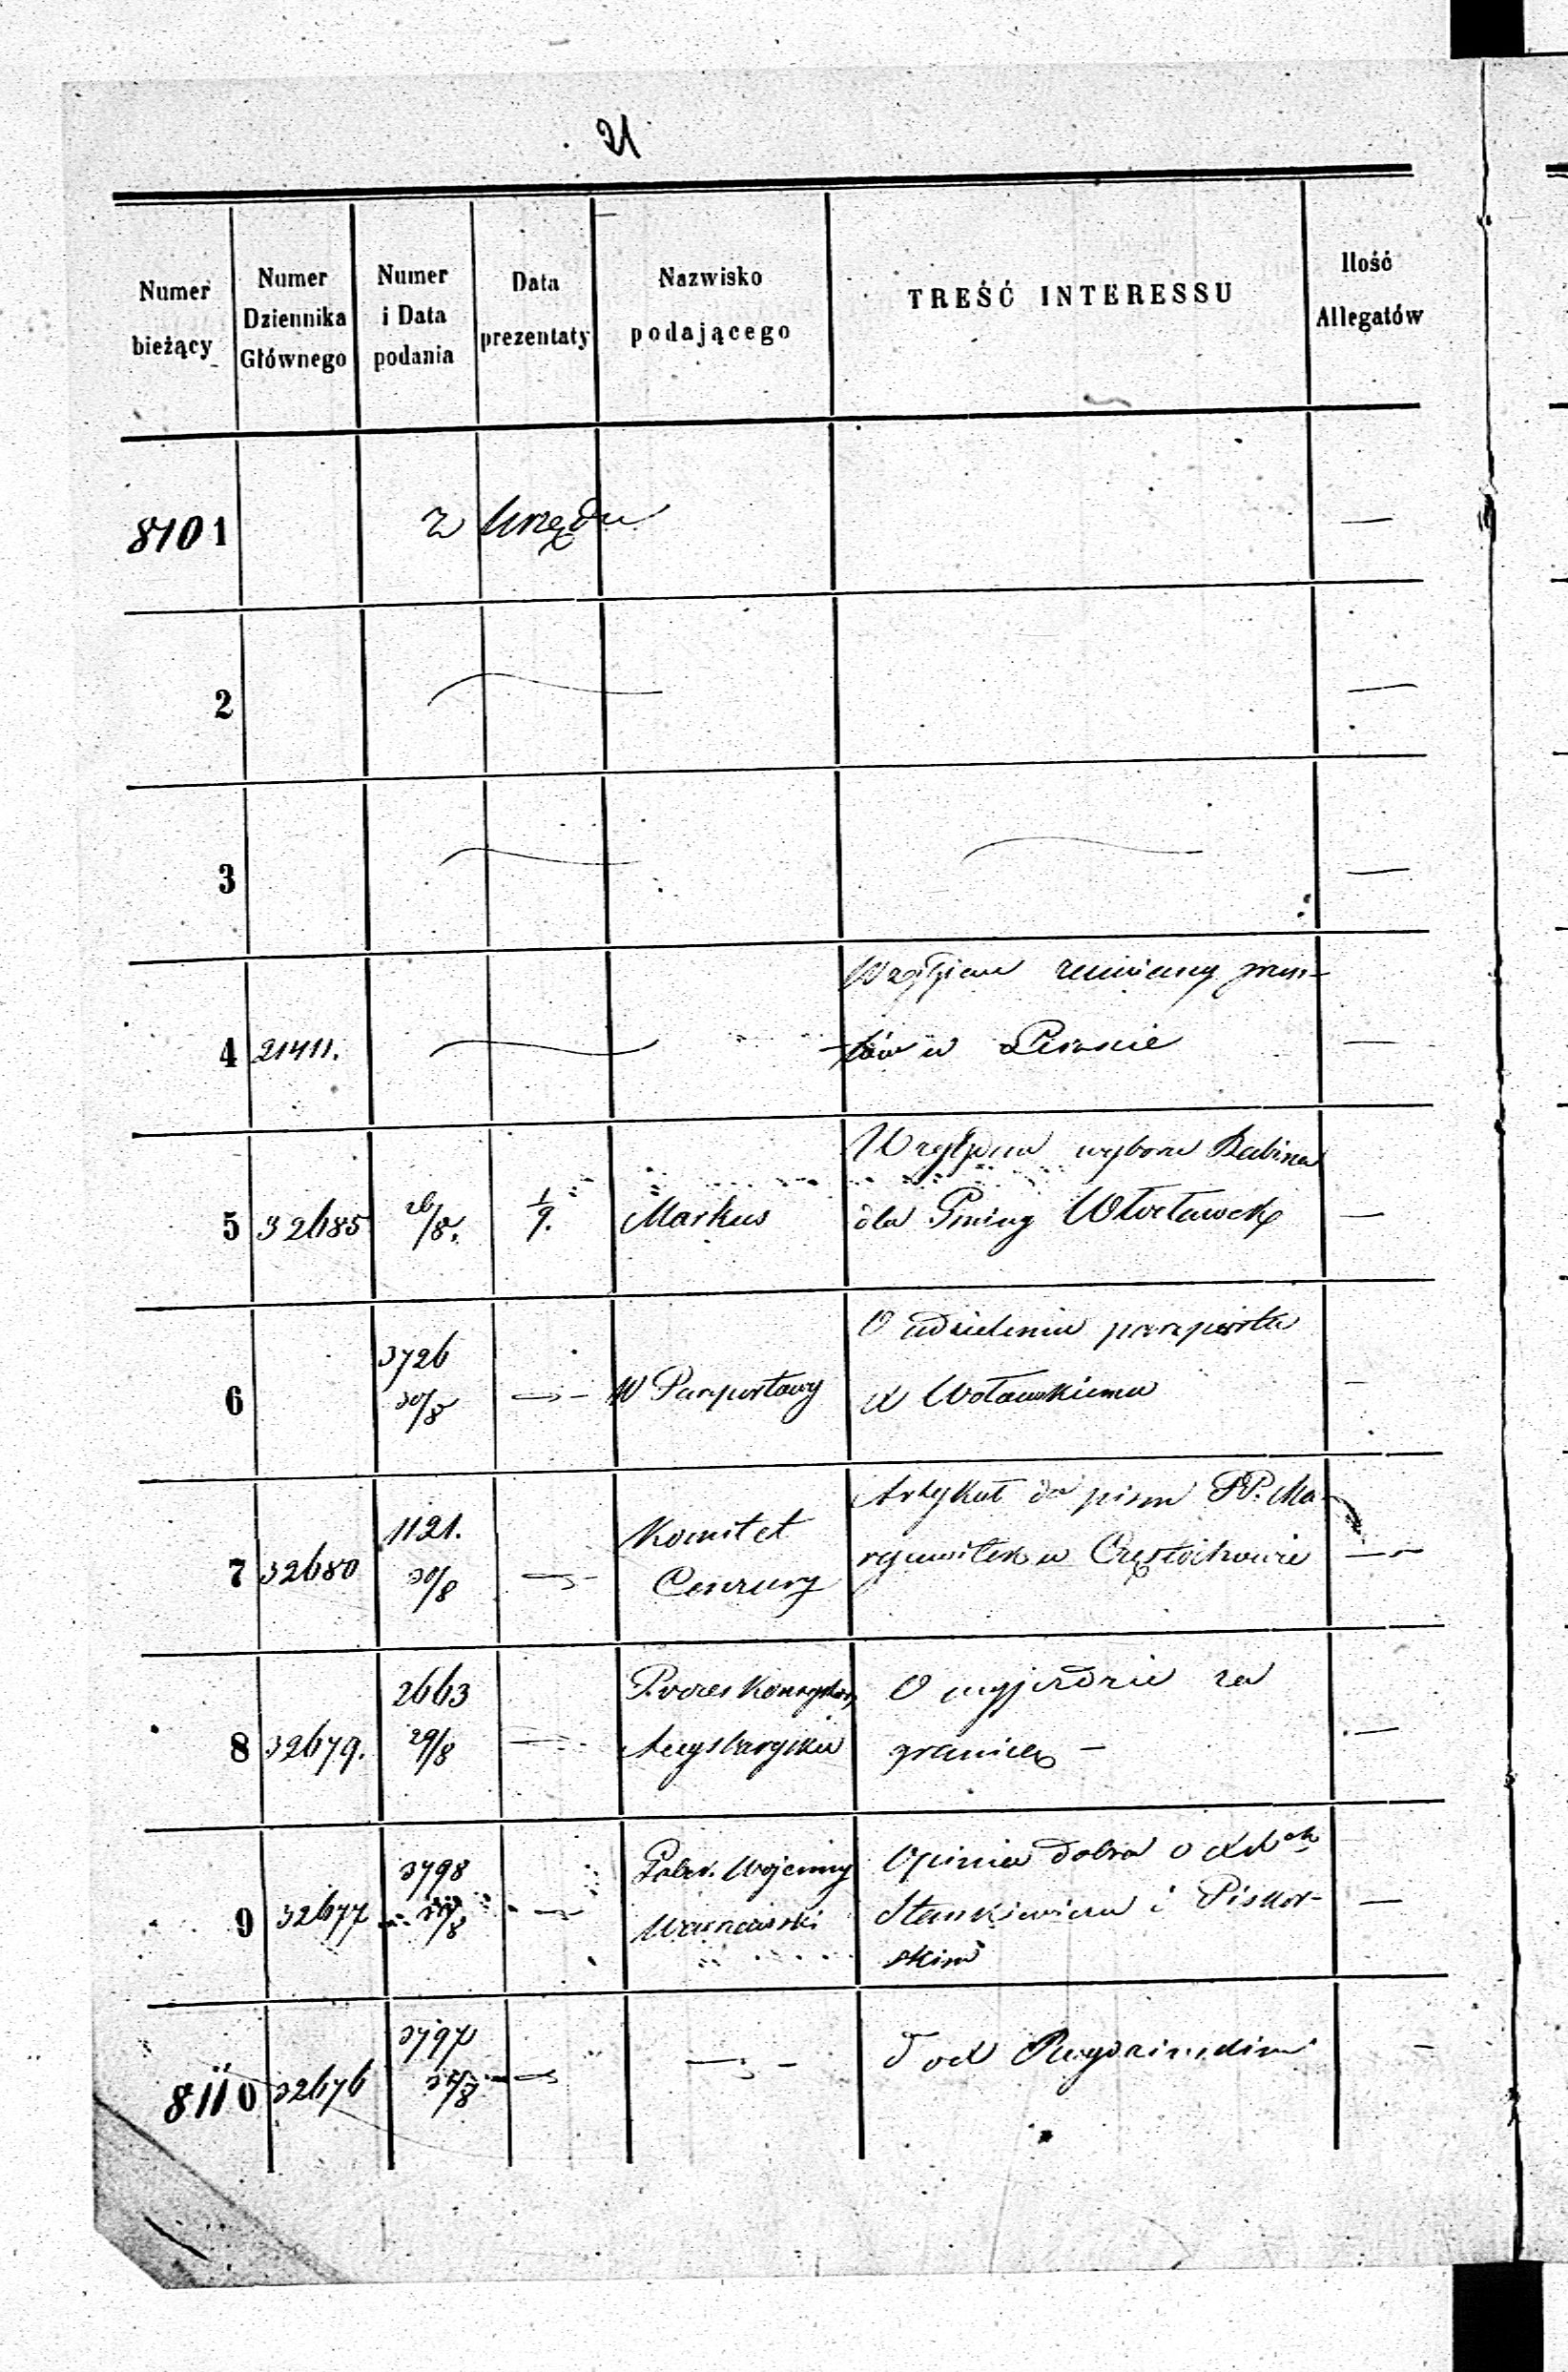 21
Numer bieżący
Numer Dziennika Głównego
Numer i Data podania
Data prezentaty
Nazwisko podającego
TREŚĆ INTERESSU
Ilość Allegatów
8101 z Urzędu —
2 —
3 —
4 21411. —
tów w
5 32685 26/8. 1/9. Markus Względem wyboru Rabina
dla Gminy Włocławek —
6 3726 30/8 W Paszportowy O udzieleniu paszportu
Woławskiemu —
7 32680 1121. 30/8 Komitet Cenzury Artykuł do pism PP. Ma-
w Częstochowie —
8 32679. 2663 29/8 O wyjeździe za
granicę — —
9 32677 3798 /8 Wojenny Warszawski Opinia dobra o
Stankiewiczu i Piskor-
skim —
8110 32676 3797 /8 —